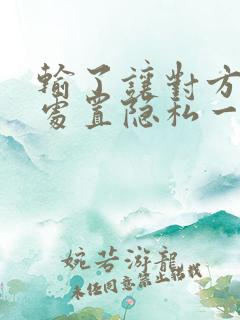 輸了讓對方
處置隐私一
婉若游龍
未经同意禁止转载